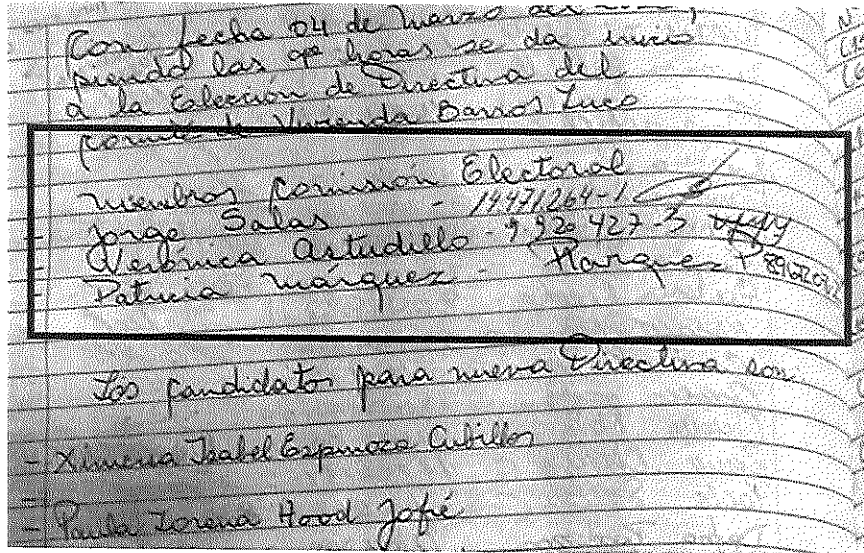 Con fecha 04 de Marzo del
siendo las horas se da inicio
a la Eslección de Directiva del
Comité de Vivienda Barros Luco
miembros Comisión Electoral
- Jorge Salas - 14471264-1
- Verónica Astudillo - 9.920.427-5
- Patricia Márquez - Marquez P
Los Candidatos para nueva Directiva son
- Ximena Isabel Espinoza Cubillos
- Paula Lorena Hood Jofré